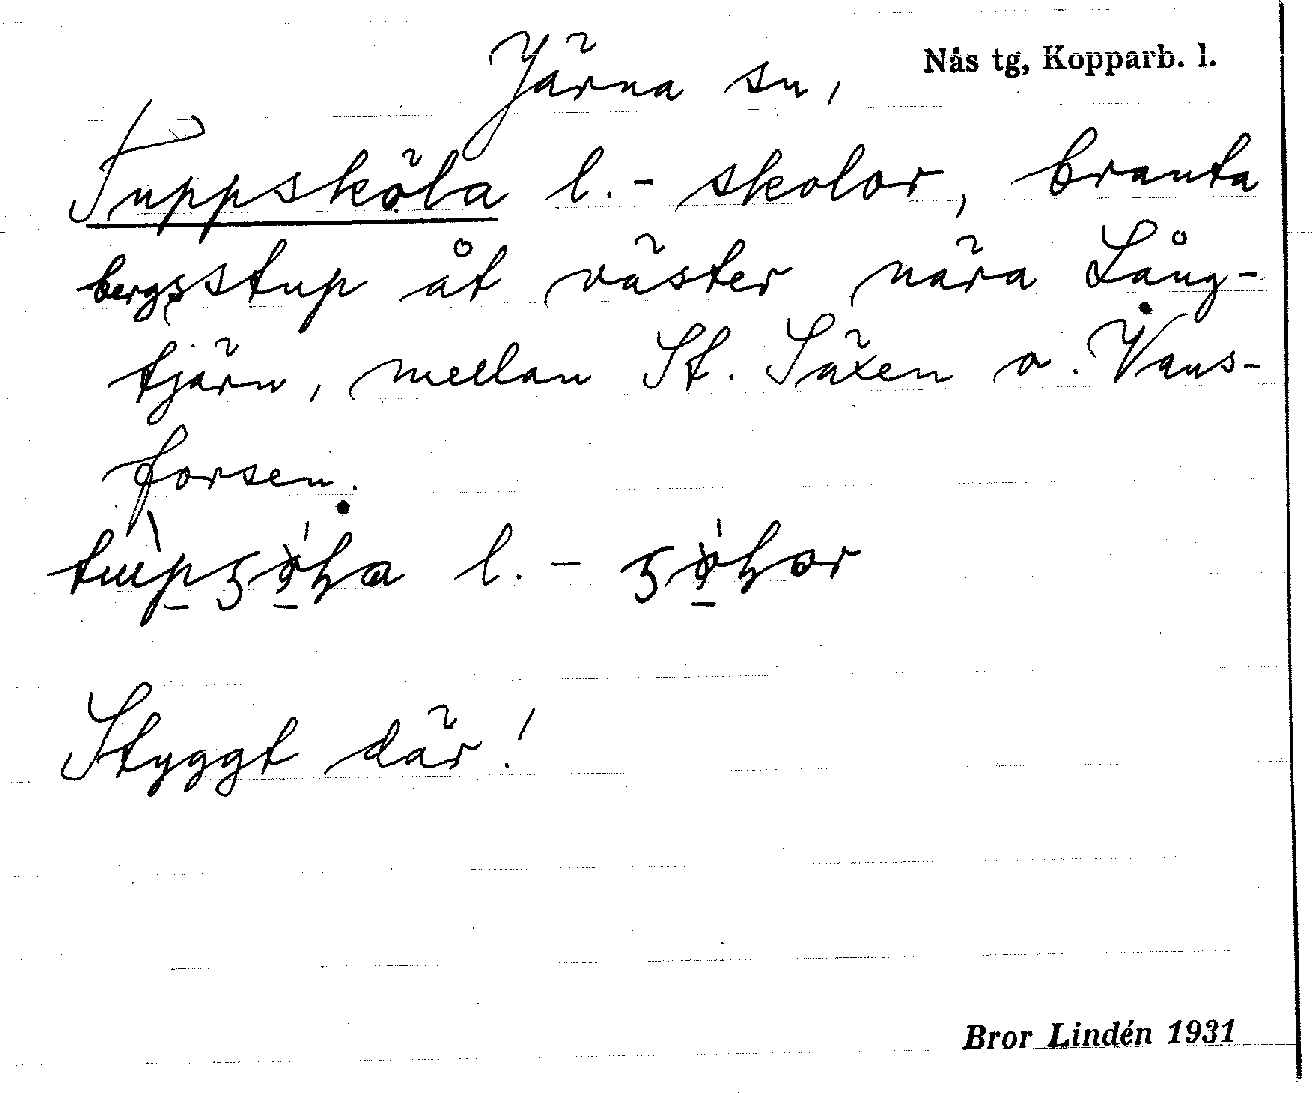 Järna sn, Nås tg, Kopparb. l.
Tuppsköla l. - skolor, branta
bergsstup åt väster nära Lång-
tjärn, mellan St. Säxen o. Vans-
forsen.
Styggt där!
Bror Lindén 1931